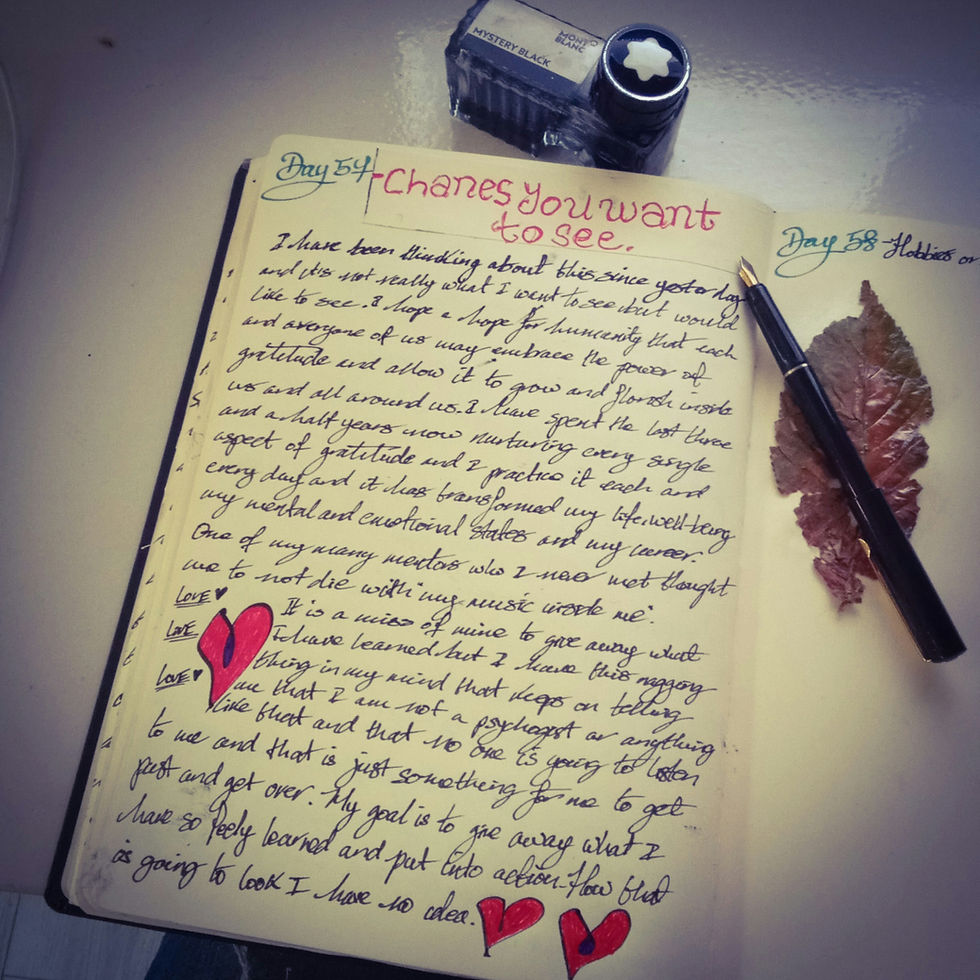 MONT
BLANC
MYSTERY BLACK
Day 57
-Chanes you want
to see.
I have been thinking about this since yesterday
and it's not really what I want to see but would
like to see. I hope a hope for humanity that each
and everyone of us may embrace the power of
gratitude and allow it to grow and florish inside
us and all around us. I have spent the last three
and a half years now nurturing every single
aspect of gratitude and I practice it each and
every day and it has transformed my life, well-being
my mental and emotional states and my career.
One of my many mentors who I never met thought
me to not die with "my music inside me".
LOVE ♥
LOVE
LOVE ♥
It is a miss of mine to give away what
I have learned but I have this nagging
thing in my mind that keeps on telling
me that I am not a psychogist or anything
like that and that no one is going to listen
to me and that is just something for me to get
past and get over. My goal is to give away what I
have so feely learned and put into action. How that
is going to look I have no idea.
Day 58 - Hobbies or